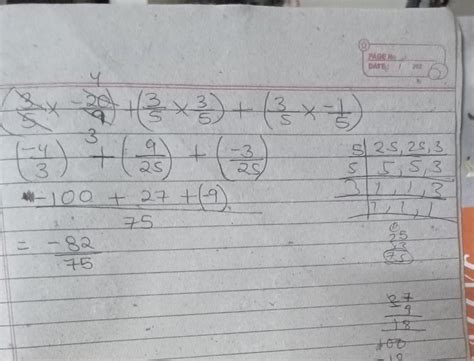 PAGE No.
DATE: / / 202
4
(3/5 × -20/9) + (3/5 × 3/5) + (3/5 × -1/5)
3
(-4/3) + (9/25) + (-3/25)
-100 + 27 + (-9)
75
= -82/75
5 | 25, 25, 3
5 | 5, 5, 3
3 | 1, 1, 3
1, 1, 1
25
×3
75
27
9
18
100
-18